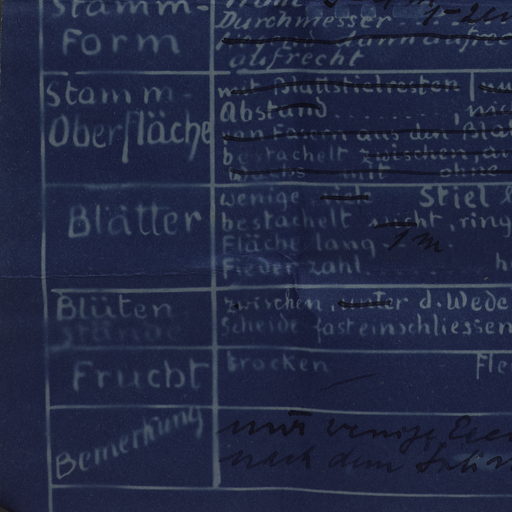 Stamm-
Form
Durchmesser 1-2cm
liegend dann aufrec
aufrecht
Stamm-
Oberfläche
mit Blattstielresten
Abstand
von Fasern aus den Blat
bestachelt zwischen, au
Wachs mit ohne
Blätter
wenige, viele Stiel
bestachelt nicht, ring
Fläche lang 1 m.
Fieder zahl
Blüten
stände
zwischen, unter d. Wede
Scheide fast einschliessen
Frucht
trocken Fle
Bemerkung
nur wenige
nach dem